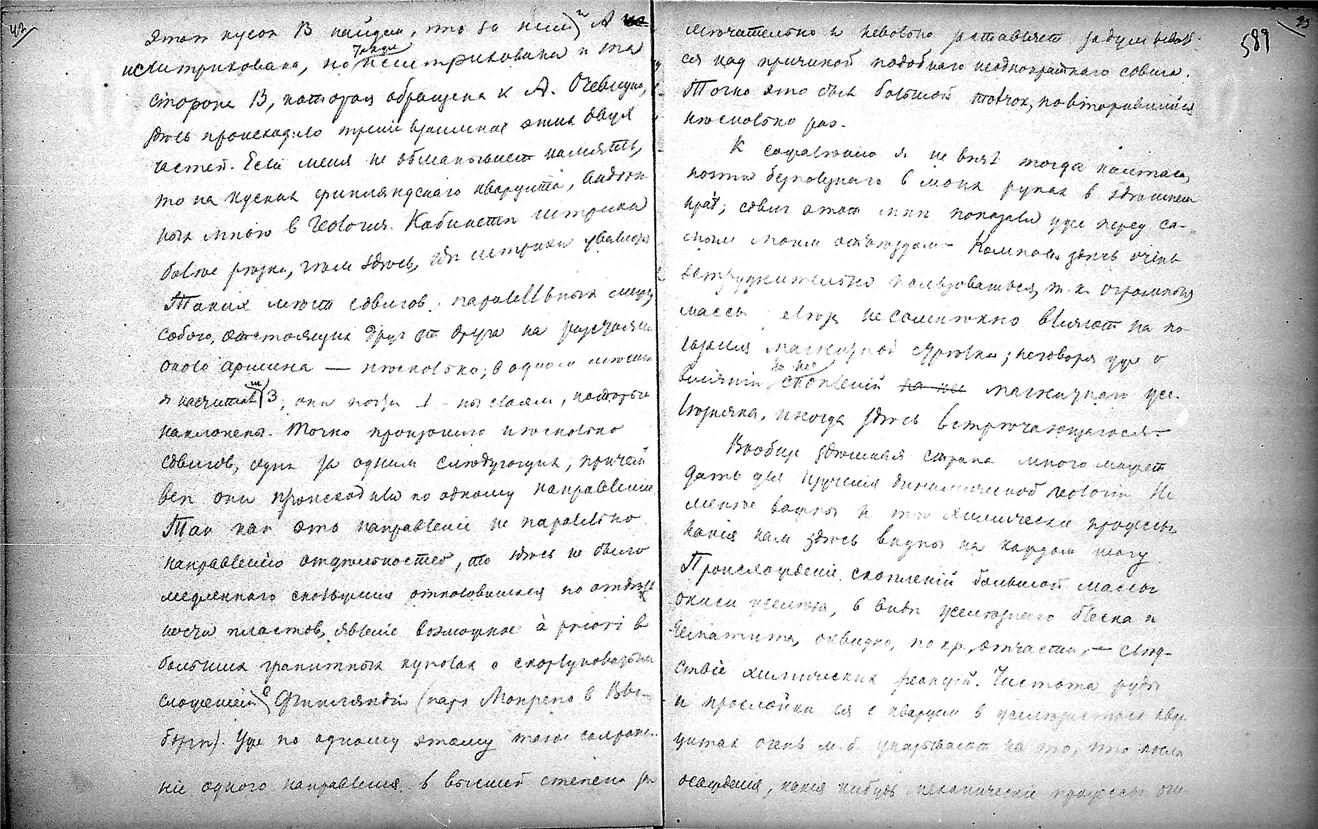 42
этот кусок B найдем, что за ним A
исштрихована, но также исштрихована и та
сторона B, которая обращена к A. Очевидно,
здесь происходило трение взаимное этих двух
частей. Если меня не обманывает память,
то на кусках финляндского кварцита,
ных мною в Геология. Кабинет штрихи
более резки, чем здесь, где штрихи
Таких мест сдвигов, параллельных между
собою, отстоящих друг от друга на расстоянии
около аршина — несколько; в одном месте
я насчитал 3; они почти ⊥-ны сваям, которые
наклонены. Точно произошло несколько
сдвигов, один за одним следующих, причем
все они происходили по одному направлению.
Так как это направление не параллельно
направлению отдельностей, то здесь не было
медленного скольжения отколовшихся по отдель
ности пластов, явление возможное à priori в
больших гранитных куполах с скорлуповатым
сложением Финляндии (парк Монрепо в Вы-
борге). Уже по одному этому такое сохране-
ние одного направления в высшей степени за
93
589
мечательно и невольно заставляет задумывать
ся над причиной подобного неоднократного сдвига.
Точно это был большой толчок, повторившийся
несколько раз.
К сожалению я не взял тогда
в моих руках в здешнем
крае; сдвиг этот мне показали уже перед са-
мым моим отъездом — Компасом здесь очень
затруднительно пользоваться, т. к. огромные
массы несомненно влияют на по-
казания магнитной стрелки; не говоря уже о
влиянии на нее скоплений магнитного же-
лезняка, иногда здесь встречающегося —
Вообще здешняя страна много может
дать для изучения динамической геологии. Не
менее важны и те химические процессы
какие нам здесь видны на каждом шагу
Происхождение скоплений большой массы
окиси железа, в виде железного блеска и
гематита, очевидно, по кр. отчасти, — след-
ствие химических реакций. Чистота руды
и прослойки ея с кварцем в железистых квар
цитах очень м. б. указывают на то, что после
осаждения, какие нибудь механические процессы